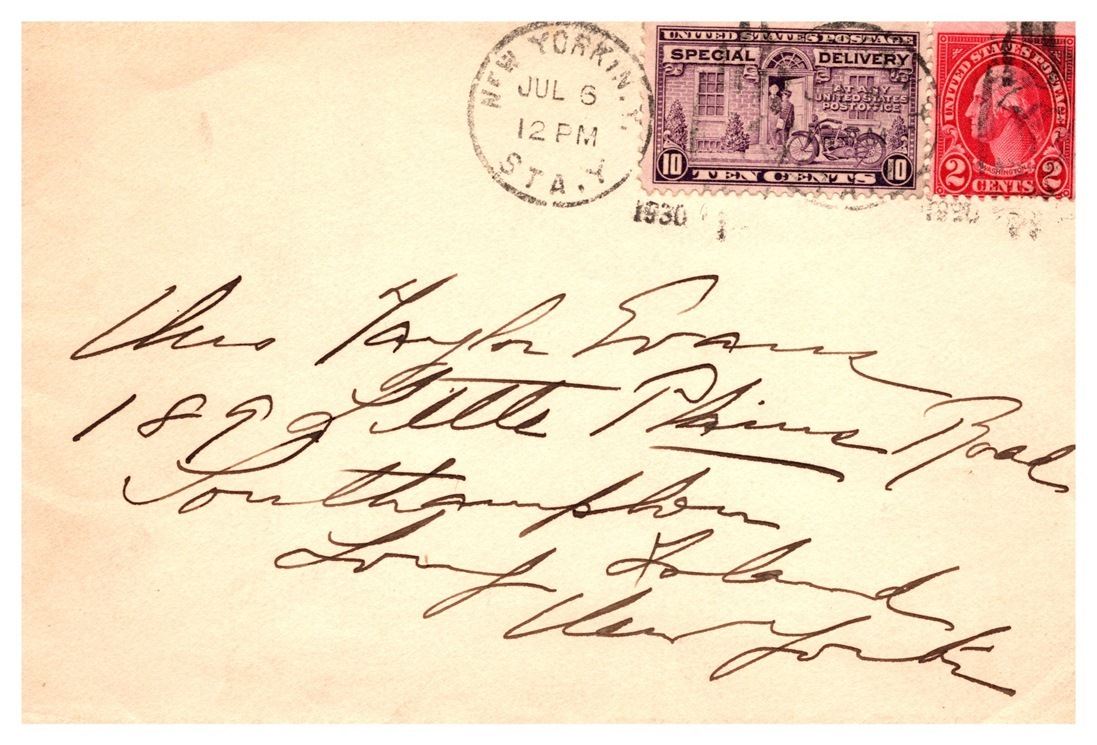 NEW YORK, N.Y.
JUL 6
12 PM
STA. Y
1930
UNITED STATES POSTAGE
SPECIAL DELIVERY
AT ANY
UNITED STATES
POST OFFICE
10 TEN CENTS 10
UNITED STATES POSTAGE
WASHINGTON
2 CENTS 2
1930
Taylor Evans
189 Little Plains Road
Southampton
Long Island
New York